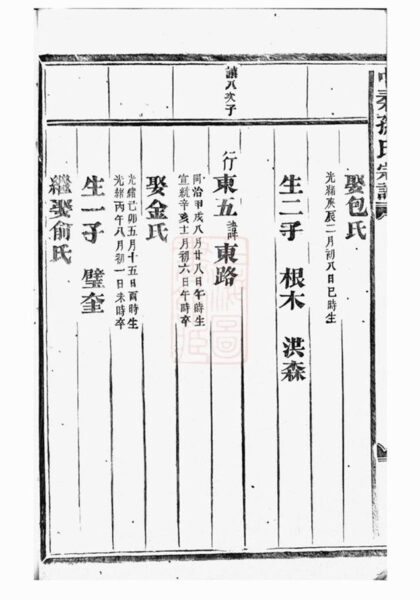 孫氏宗譜
娶包氏
光緒庚辰二月初八日巳時生
生二子 根木 洪森
八次子
行東五諱東路
同治甲戌八月廿八日午時生
宣統辛亥十一月初六日午時卒
娶金氏
光緒己卯五月十五日酉時生
光緒丙午八月初一日未時卒
生一子 璧奎
繼娶俞氏